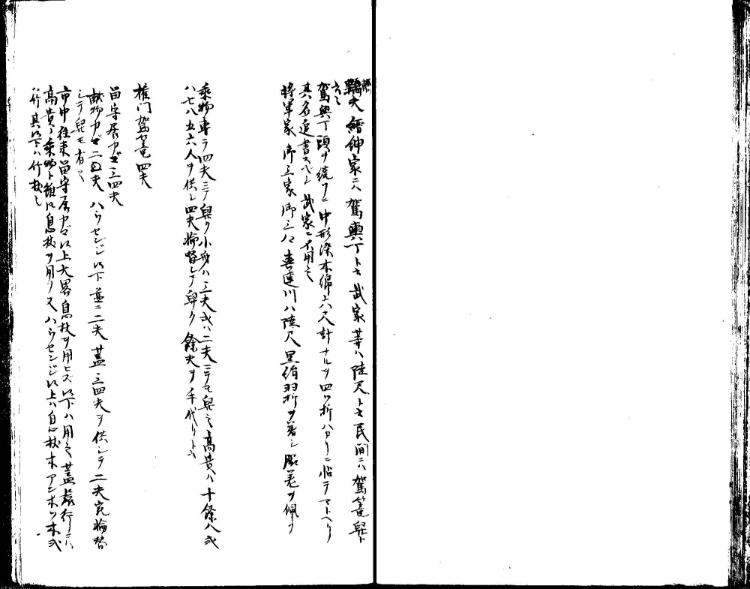 轎夫 縉紳家ニハ駕輿丁ト云 武家等ハ陸尺ト云 民間ニハ駕篭舁ト
云也
駕輿丁頭ヲ続フニ中形染木綿六八尺計ナルヲ四ツ折ハカリニ帖テマトヘリ
其名追書スベシ 武家ニ不用之
将軍家 御三家 御三卿 喜連川ハ陸尺黒絹羽折ヲ着シ脇差ヲ佩ク
乗物専ラ四夫ニテ舁ク 小身ハ三夫或ハ二夫ニテモ舁之 高貴ハ十餘人或
ハ七八五六人ヲ供シ四夫輪替シテ舁ク 餘夫ヲ手代リト云
権門駕篭四夫
留守居カゴ三四夫
献物カゴ二四夫 ハウセンジ以下並ニ二夫 蓋三四夫ヲ供シテ二夫宛輪替
シテ舁モ有之
市中往来留守居カゴ以上大畧息杖ヲ用ヒズ以下ハ用之 蓋旅行ニハ
高貴ノ乗物ト雖ドモ息杖ヲ用フ 又ハウセンジ以上ハ息杖木 アンホツ木或
ハ竹 其以下ハ竹杖也